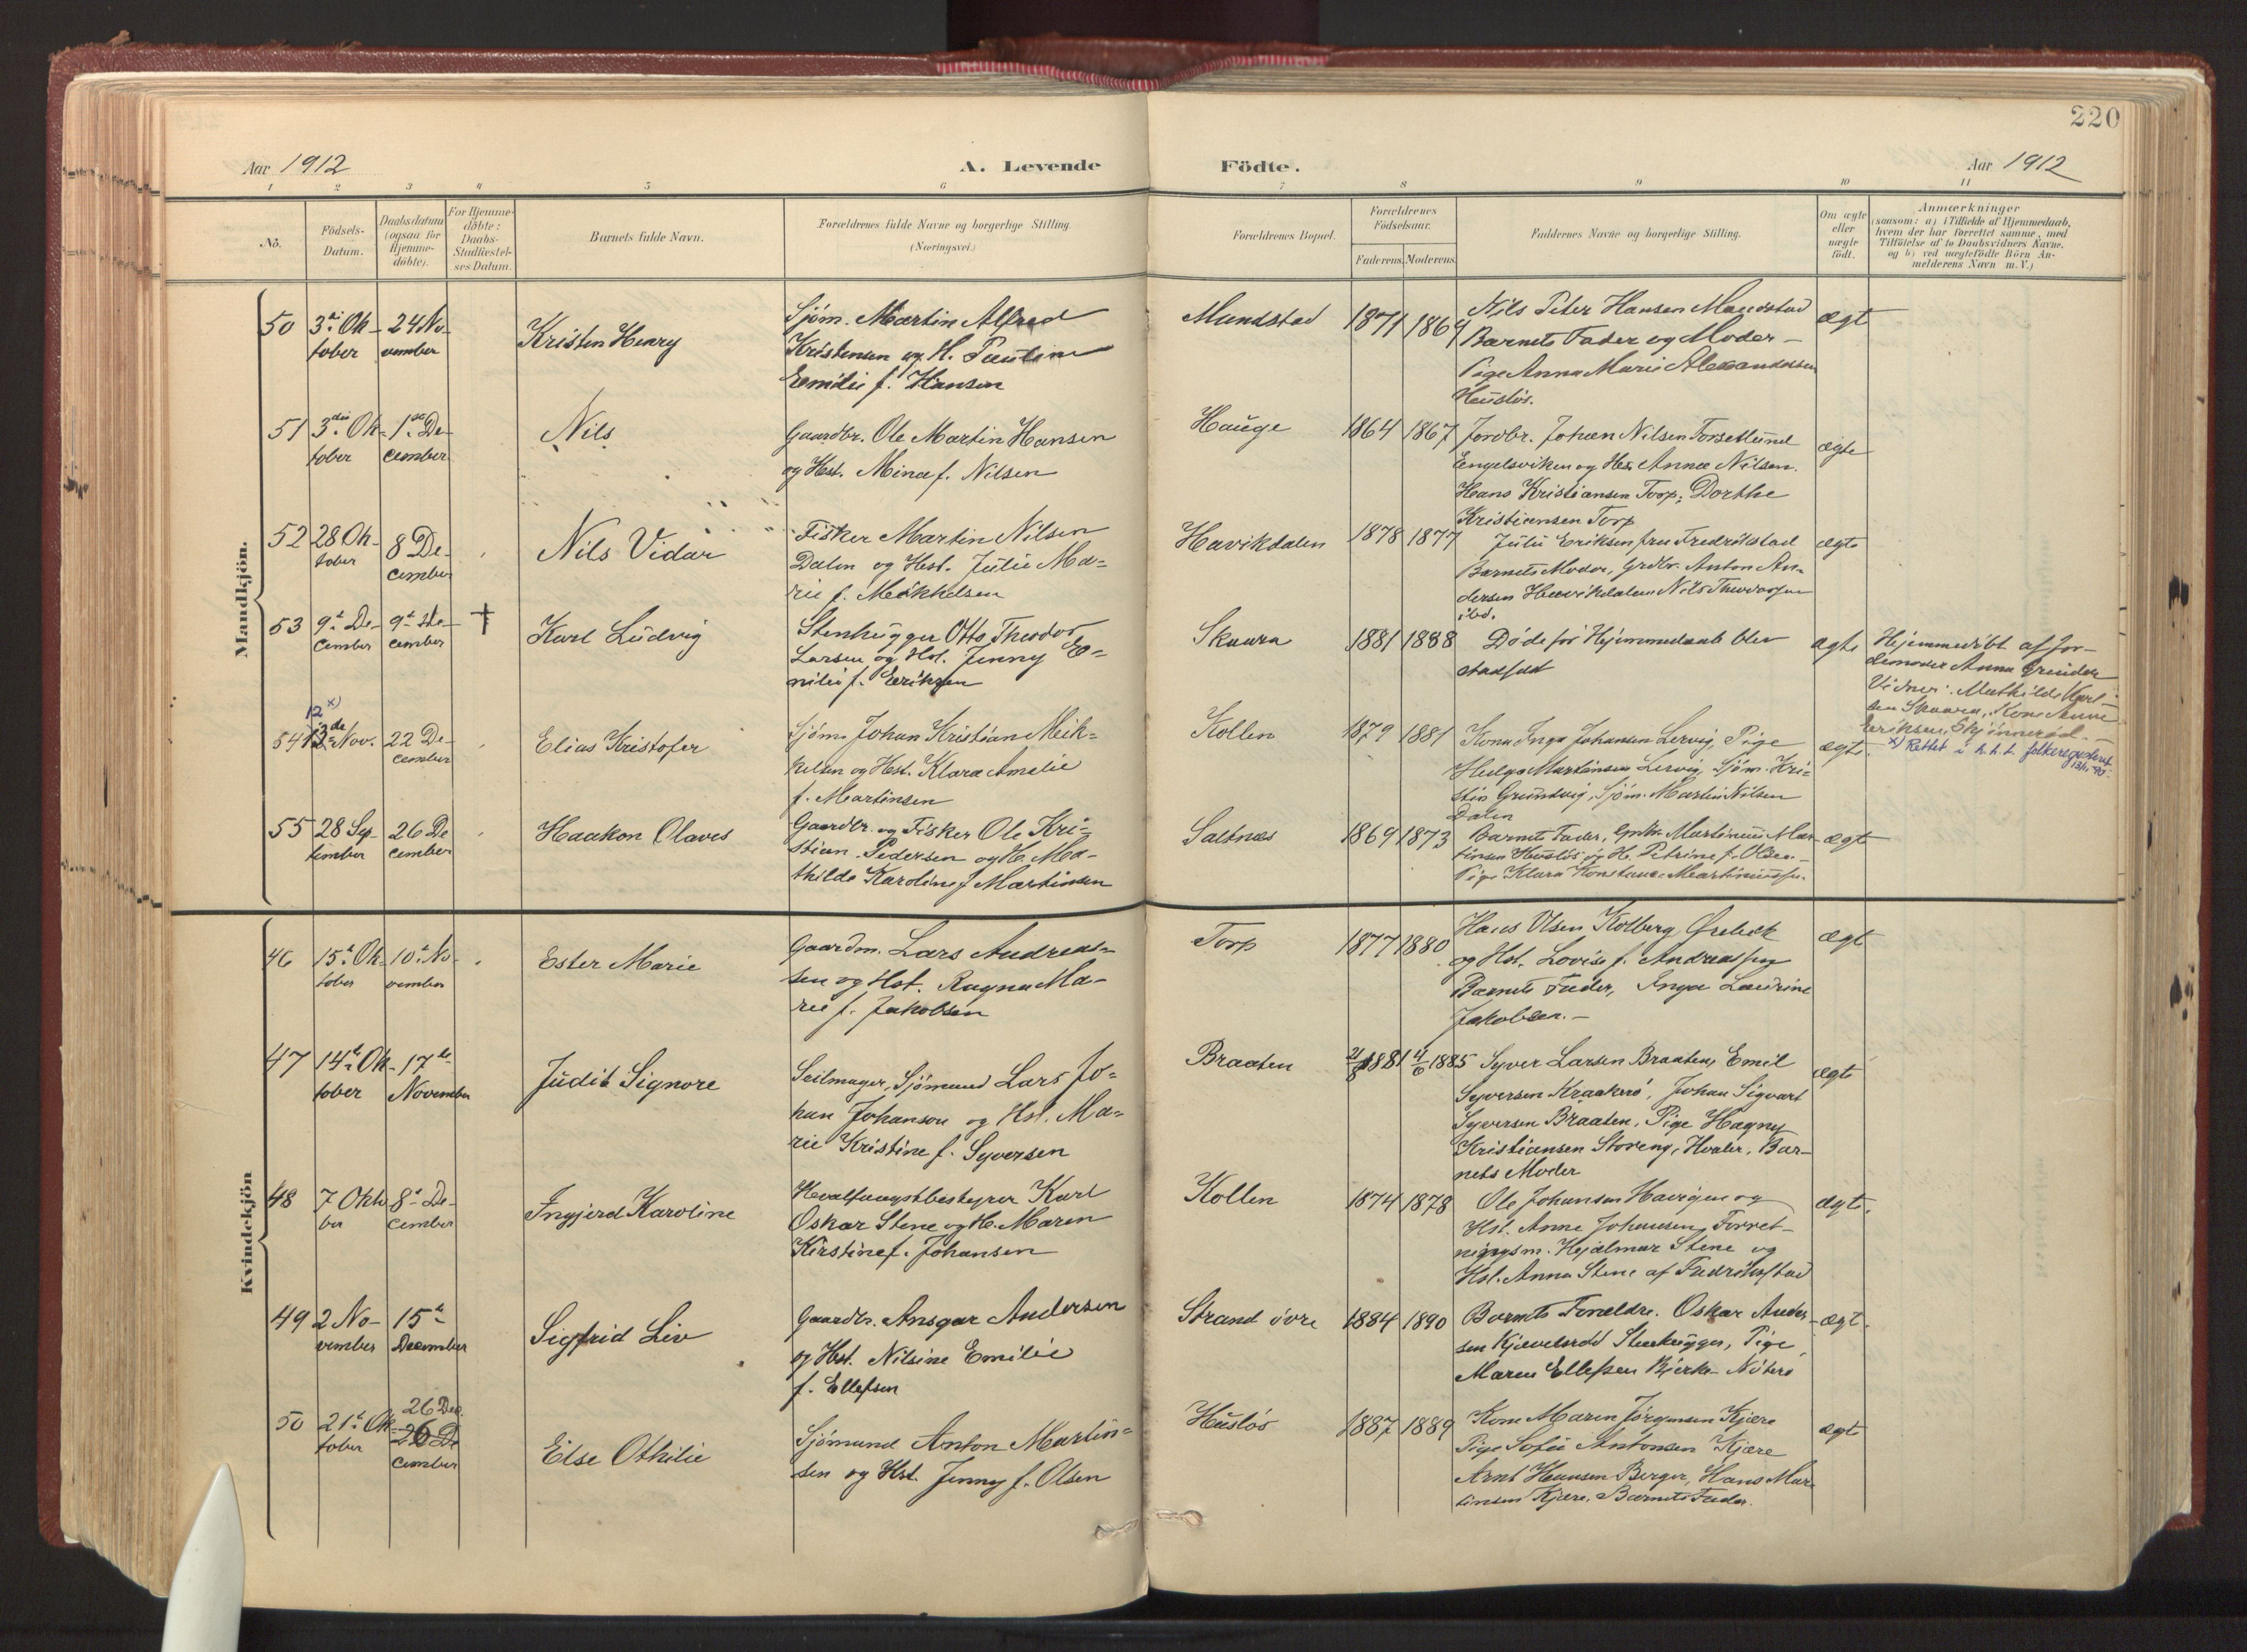 220
Aar 1912
A. Levende
Födte.
Aar 1912
1 2 3 4 5 6 7 8 9 10 11
No.
Födsels-
Datum.
Daabsdatum
(ogsaa for
Hjemme-
döbte).
For Hjemme-
döbte:
Daabs-
Stadfæstel-
ses Datum.
Barnets fulde Navn.
Forældrenes fulde Navne og borgerlige Stilling.
(Næringsvei.)
Forældrenes Bopæl.
Forældrenes
Födselsaar.
Faderens. Moderens.
Faddernes Navne og borgerlige Stilling.
Om ægte
eller
uægte
födt.
Anmærkninger
(saasom: a) i Tilfælde af Hjemmedaab,
hvem der har forrettet samme, med
Tilföielse af to Daabsvidners Navne,
og b) ved uægtefödte Börn An-
melderens Navn m. V.)
Mandkjön.
50
3di Ok-
tober
24 No-
vember
Kristen Henry
Sjøm. Martin Alfred
Kristensen og H. Pauline
Emilie f. Hansen
Mundstad
1871
1869
Nils Peter Hansen Mundstad
Barnets Fader og Moder –
Pige Anna Marie Alexandersen
Husløs.
ægt
51
3die Ok-
tober
1ste De-
cember
Nils
Gaardbr. Ole Martin Hansen
og Hst. Mina f. Nilsen
Hauge
1864
1867
Jordbr. Johan Nilsen Torselund
Engelsviken og Hs. Anna Nilsen.
Hans Kristiansen Torp, Dorthe
Kristiansen Torp
ægte
52
28 Ok-
tober
8 De-
cember
Nils Vidar
Fisker Martin Nilsen
Dalen og Hst. Julie Ma-
rie f. Mikkelsen
Havikdalen
1878
1877
Julie Eriksen fru Fredrikstad
Barnets Moder, Grdbr. Anton An-
dersen Havikdalen Nils Theodorsen
ibd.
ægte
53
9de De-
cember
9de De-
cember
†
Karl Ludvig
Stenhugger Otto Theodor
Larsen og Hst. Jenny E-
milie f. Eriksen
Skaara
1881
1888
Døde før Hjemmedaab blev
stadfæst
ægte
Hjemmedøbt af Jor-
demoder Anna Grinder
Vidner: Mathilde Karl-
sen Skaara, Kone Anne
Eriksen, Skjinnerød. –
54
12 x)
13de Nov.
22 De-
cember
Elias Kristofer
Sjøm. Johan Kristian Mik-
kelsen og Hst. Klara Amalie
f. Martinsen
Kollen
1879
1881
Kona Inga Johansen Lervig, Pige
Helga Martinsen Lervig, Sjøm. Kri-
stin Grundvig, Sjøm. Martin Nilsen
Dalen
ægte.
x) Rettet i h.h.t. folkeregisteret
55
28 Sep-
tember
26 De
cember
Haakon Olaves
Gaardbr. og Fisker Ole Kri-
stian Pedersen og H. Ma-
thilde Karoline f. Martinsen
Saltnes
1869
1873
Barnets Fader, Martinius Mar-
tinsen Husløs og H. Petrine f. Olsen –
Pige Klara Konstance Martinussen.
ægte
Kvindekjön
46
15de Ok-
tober
10de No-
vember
Ester Marie
Gaardm. Lars Andreas-
sen og Hst. Ragna Ma-
rie f. Jakobsen
Torp
1877
1880
Hans Olsen Kolberg Ørebek
og Hst. Lovise f. Andreassen
Barnets Fader, Inga Laurine
Jakobsen. –
ægt
47
14de Ok-
tober
17de
November
Judit Signore
Seilmager, Sjømand Lars Jo-
han Johanson og Hst. Ma-
rie Kristine f. Syversen
Braaten
21/8 1881
4/6 1885
Syver Larsen Braaten, Emil
Syversen Kraakerø, Johan Sigvart
Syversen Braaten, Pige Hagny
Kristiansen Storeng, Hvaler, Bar-
nets Moder
ægt
48
7 Okto
ber
8de De-
cember
Ingjerd Karoline
Hvalfangstbestyrer Karl
Oskar Stene og H. Maren
Kirstine f. Johansen
Kollen
1874
1878
Ole Johansen Havigen og
Hst. Anne Johansen, Forret-
ningsm. Hjalmar Stene og
Hst. Anna Stene af Fredrikstad
ægte.
49
2 No-
vember
15de
December
Sigfrid Liv
Gaardbr. Ansgar Andersen
og Hst. Nilsine Emilie
f. Ellefsen
Strand øvre
1884
1890
Barnets Forældre. Oskar Ander-
sen Kjevelsrød Stenhugger, Pige
Maren Ellefsen Bjerke – Nøterø
ægt.
50
21de Ok-
tober
26 Dec.
26 De
cember
Else Othilie
Sjømand Anton Martin-
sen og Hst. Jenny f. Olsen
Husløs
1887
1889
Kone Maren Jørgensen Kjære
Pige Sofie Antonsen Kjære
Arnt Hansen Berger, Hans Mar
tinsen Kjære, Barnets Fader.
ægt